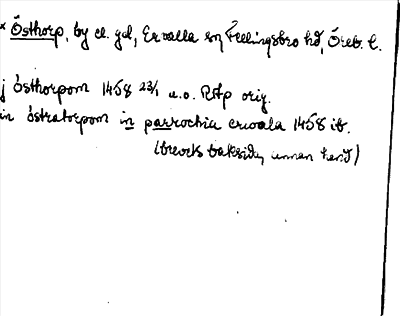 * Östhorp, by el. gd, Ervalla sn Fellingsbro hd, Öreb. l.
j østhorpom 1458 23/1 u.o. RAp orig.
in østratorpom in parrochia ervala 1458 ib.
(brevets baksida, annan hand)